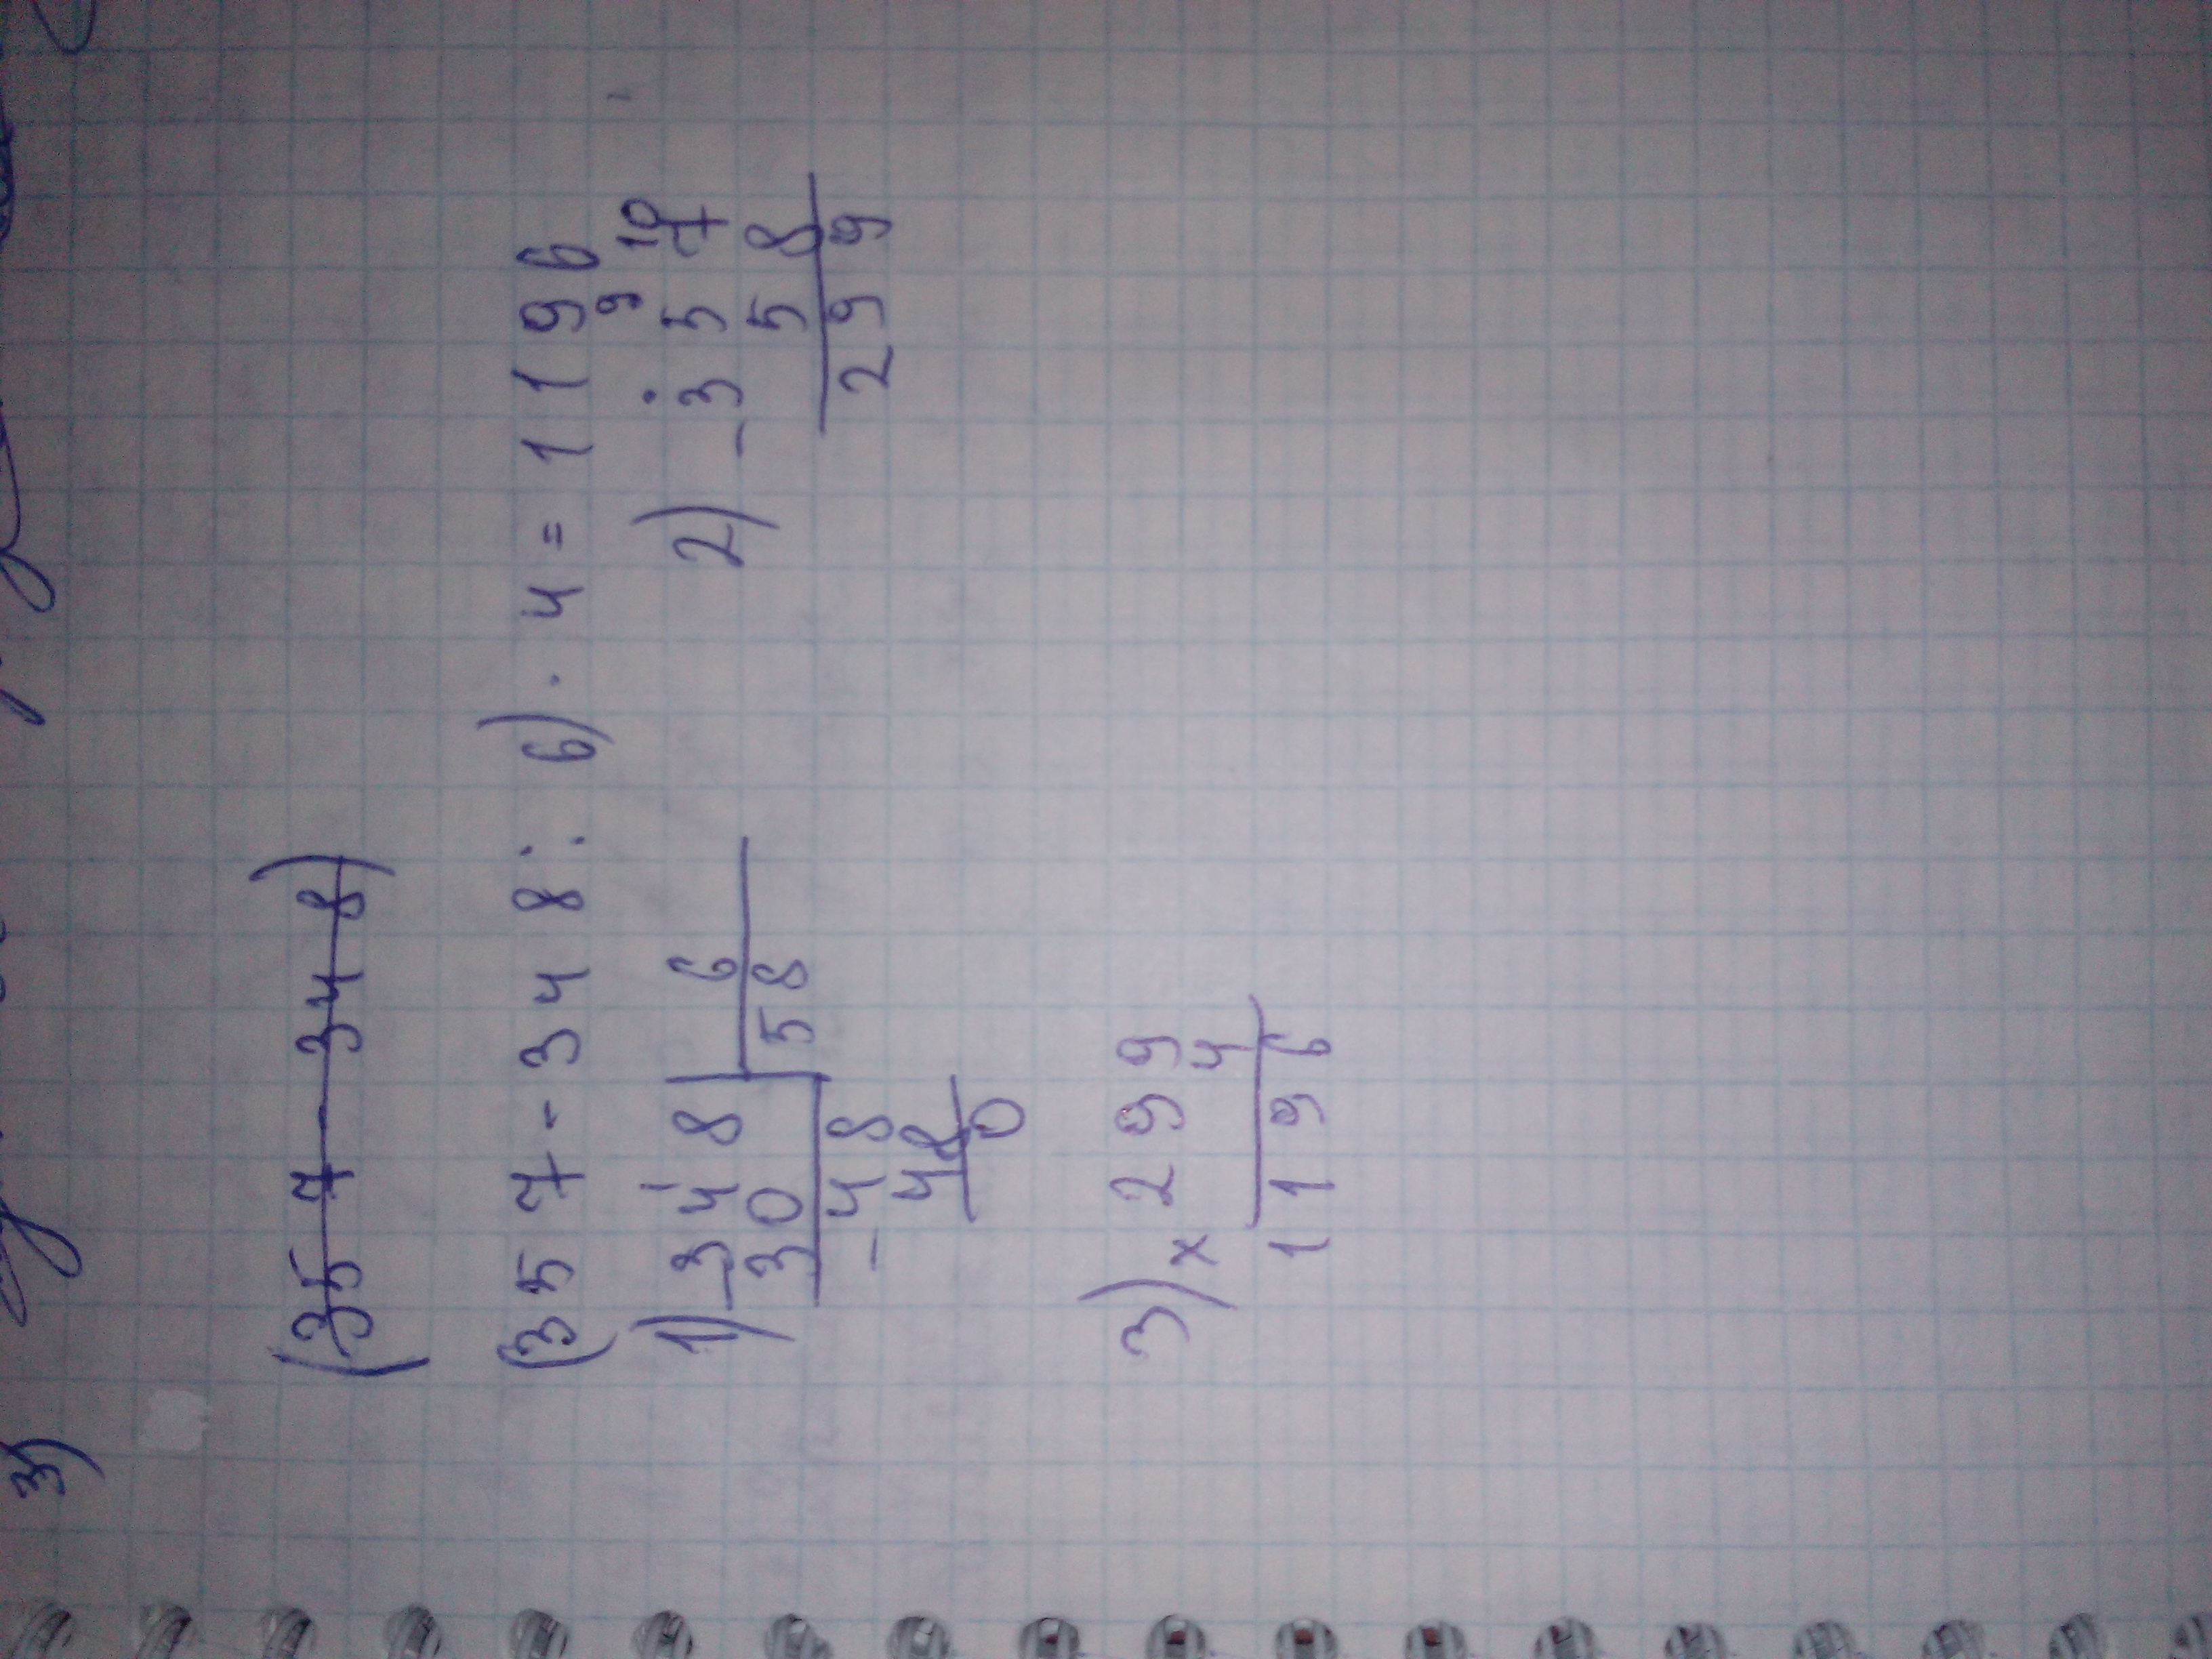 3)
(357-348)
(357-348:6)·4=1196
1) 348 6
30 58
48
48
0
2) 9 10
357
58
299
3) × 299
4
1196